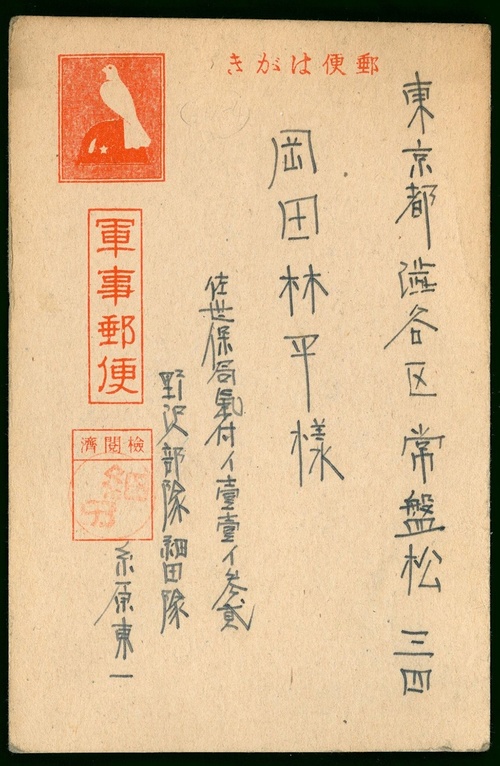 きがは便郵
東京都澁谷区常盤松三四
岡田林平様
佐世保局氣付イ壹壹イ参貳
野沢部隊細田隊
糸原東一
軍事郵便
濟閲檢
細田